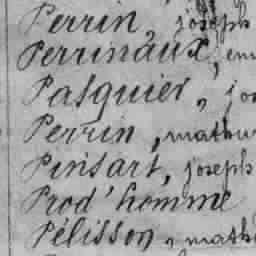 Perrin, joseph
Perrinaux, em
Pasquier, jos
Perrin, mathu
Pinsart, joseph
Prod'homme
Pélisson, math